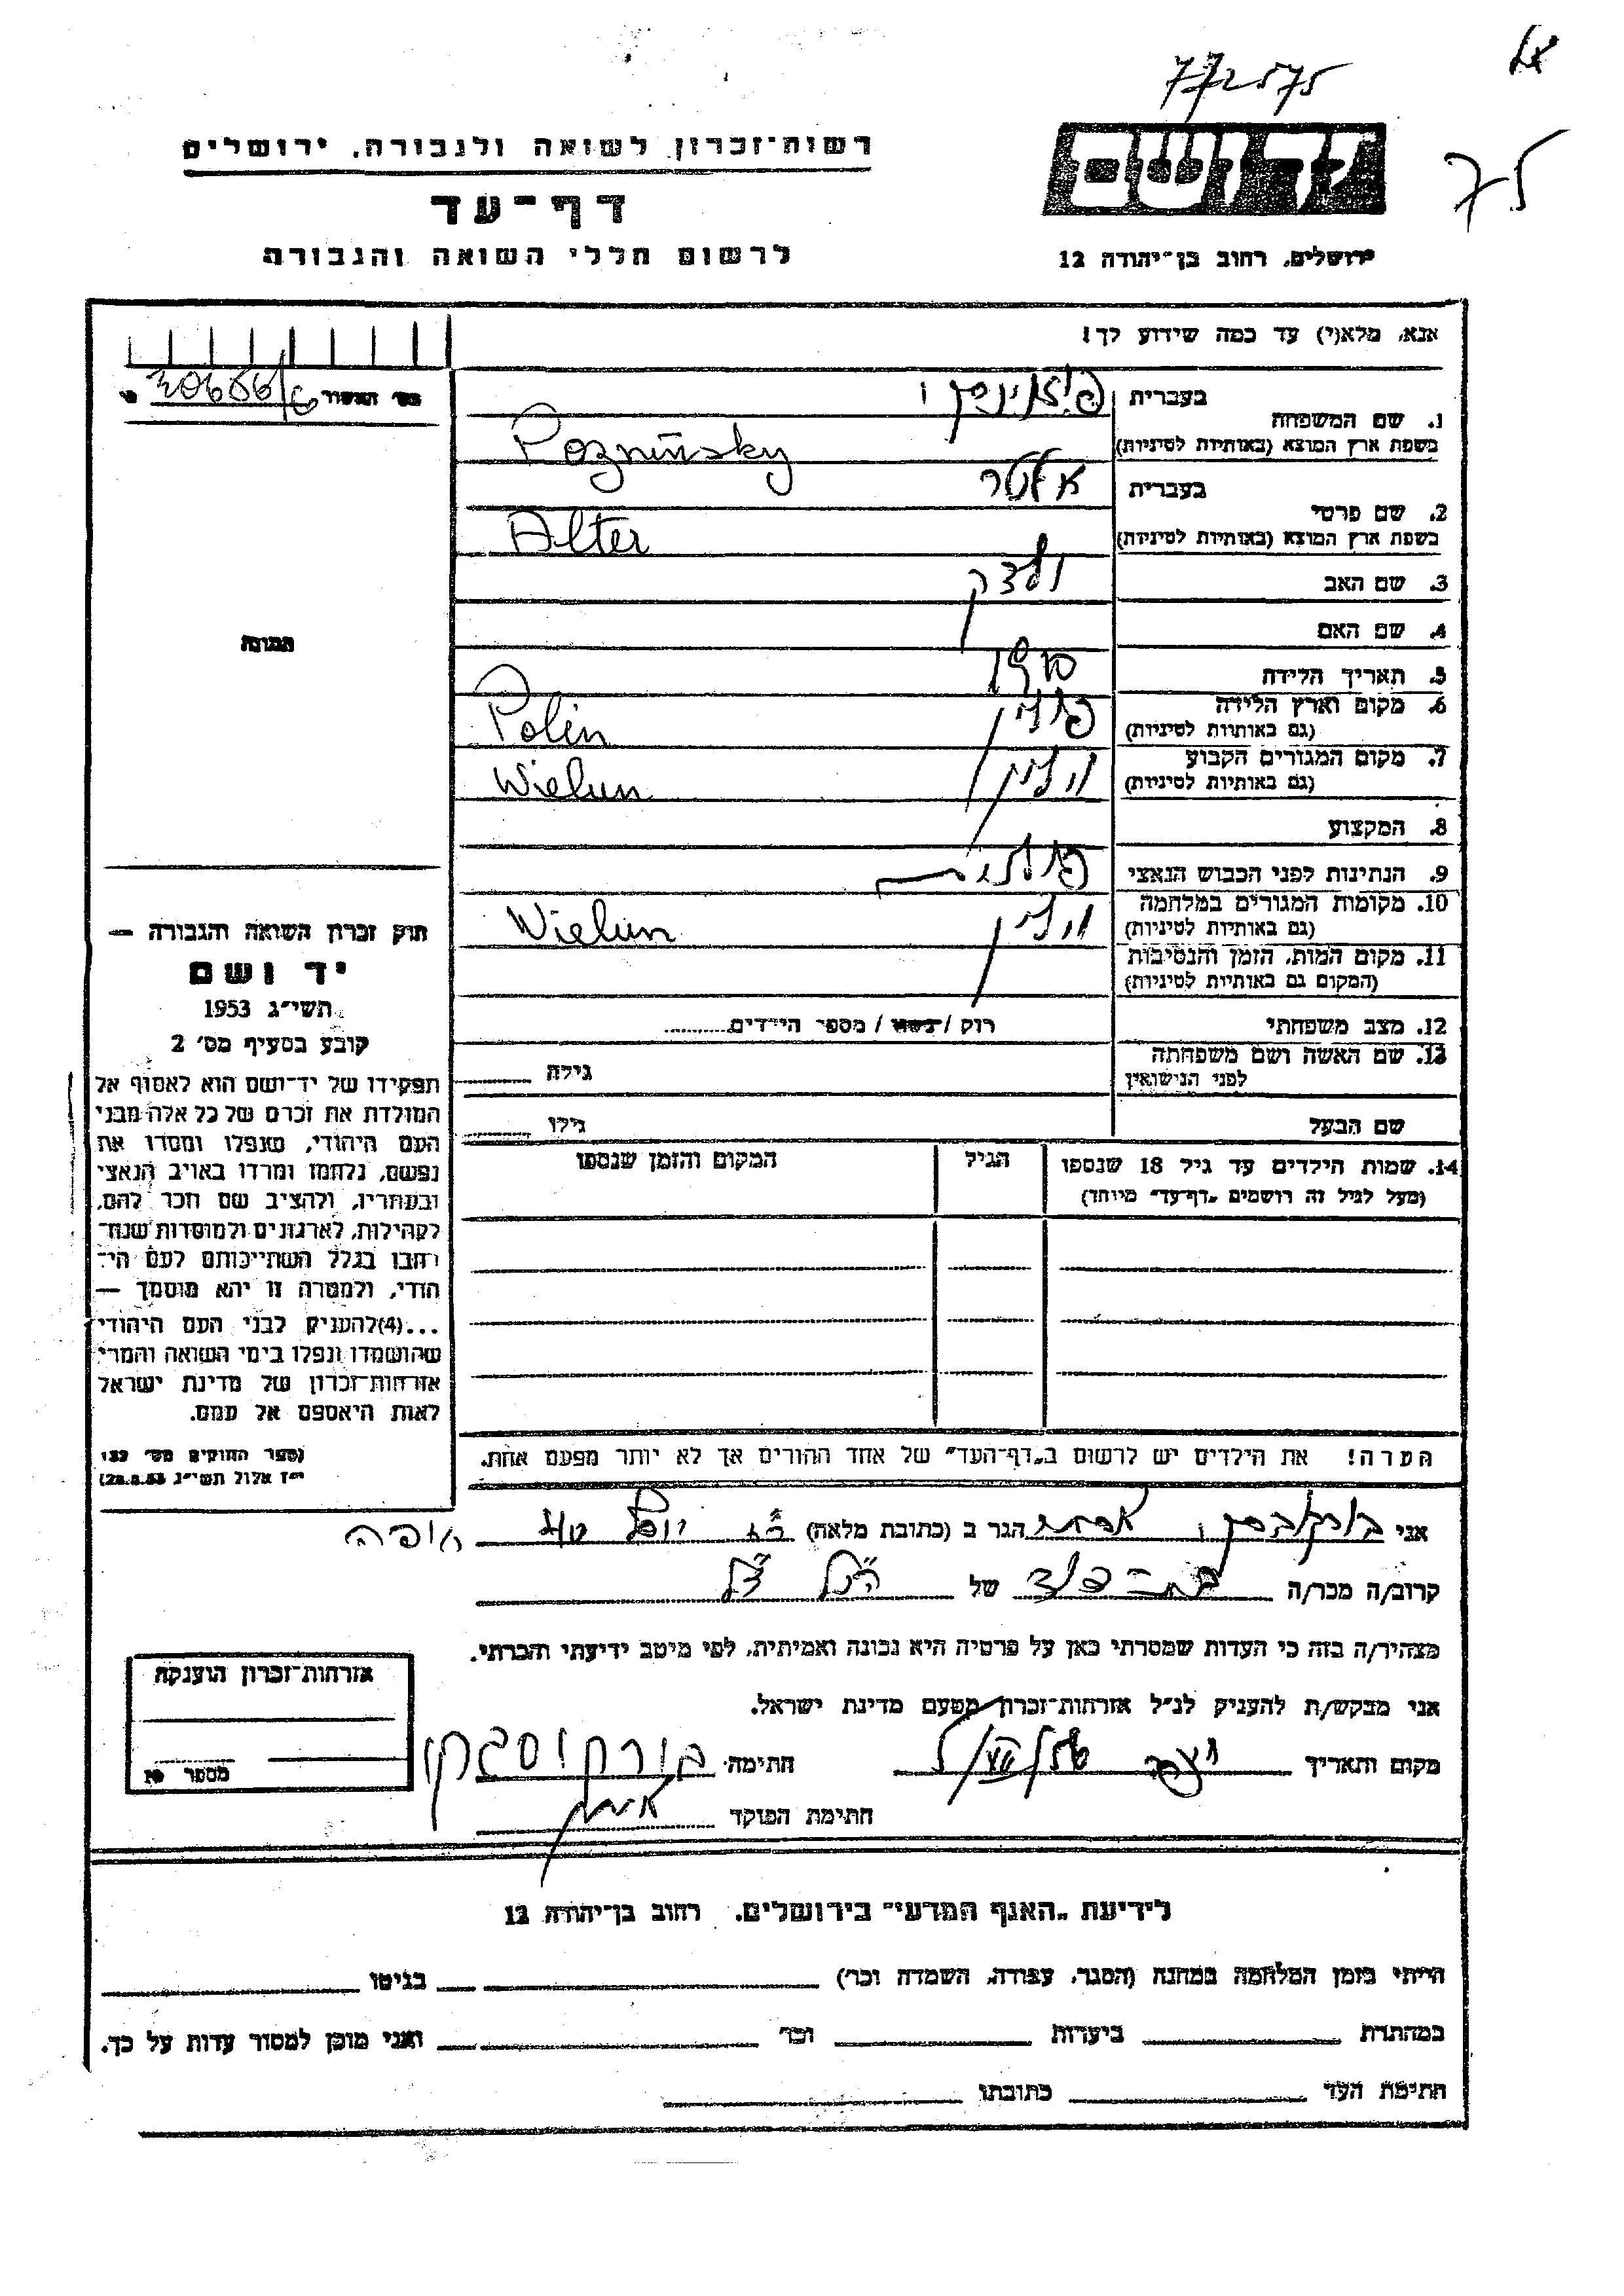 772575
רשות־זכרון לשואה ולגבורה, ירושלים
דף־עד
לרשום חללי השואה והגבורה
ירושלים, רחוב בן־יהודה 12
אנא, מלא(י) עד כמה שידוע לך!
1. שם המשפחה בעברית
בשפת ארץ המוצא (באותיות לטיניות) Poznińsky
2. שם פרטי בעברית אלטר
בשפת ארץ המוצא (באותיות לטיניות) Alter
3. שם האב
4. שם האם
5. תאריך הלידה
6. מקום וארץ הלידה פולין Polin
(גם באותיות לטיניות)
7. מקום המגורים הקבוע וילון Wielun
(גם באותיות לטיניות)
8. המקצוע
9. הנתינות לפני הכבוש הנאצי פולנית
10. מקומות המגורים במלחמה Wielun
(גם באותיות לטיניות)
11. מקום המות, הזמן והנסיבות
(המקום גם באותיות לטיניות)
12. מצב משפחתי רוק / נשוי / מספר הילדים
13. שם האשה ושם משפחתה גילה
לפני הנישואין
שם הבעל גילו
14. שמות הילדים עד גיל 18 שנספו הגיל המקום והזמן שנספו
(מעל לגיל זה רושמים „דף־עד" מיוחד)
הערה! את הילדים יש לרשום ב„דף־העד" של אחד ההורים אך לא יותר מפעם אחת.
התמונה
חוק זכרון השואה והגבורה —
יד ושם
תשי"ג 1953
קובע בסעיף מס' 2
תפקידו של יד־ושם הוא לאסוף אל
המולדת את זכרם של כל אלה מבני
העם היהודי, שנפלו ומסרו את
נפשם, נלחמו ומרדו באויב הנאצי
ובעוזריו, ולהציב שם וזכר להם,
לקהילות, לארגונים ולמוסדות שנח־
רבו בגלל השתייכותם לעם הי־
הודי, ולמטרה זו יהא מוסמך —
...(4)להעניק לבני העם היהודי
שהושמדו ונפלו בימי השואה והמרי
אזרחות־זכרון של מדינת ישראל
לאות היאספם אל עמם.
(ספר החוקים מס' 132
י"ז אלול תשי"ג 28.8.53)
אני הגר ב (כתובת מלאה) חיפה
קרוב/ה מכר/ה של הנ"ל
מצהיר/ה בזה כי העדות שמסרתי כאן על פרטיה היא נכונה ואמיתית, לפי מיטב ידיעתי והכרתי.
אני מבקש/ת להעניק לנ"ל אזרחות־זכרון מטעם מדינת ישראל.
מקום ותאריך חתימה
חתימת הפוקד
אזרחות־זכרון הוענקה
לידיעת „האגף המדעי" בירושלים, רחוב בן־יהודה 12
הייתי בזמן המלחמה במחנה (הסגר, עבודה, השמדה וכו') בגיטו
במחתרת ביערות וכו' ואני מוכן למסור עדות על כך.
חתימת העד כתובתו